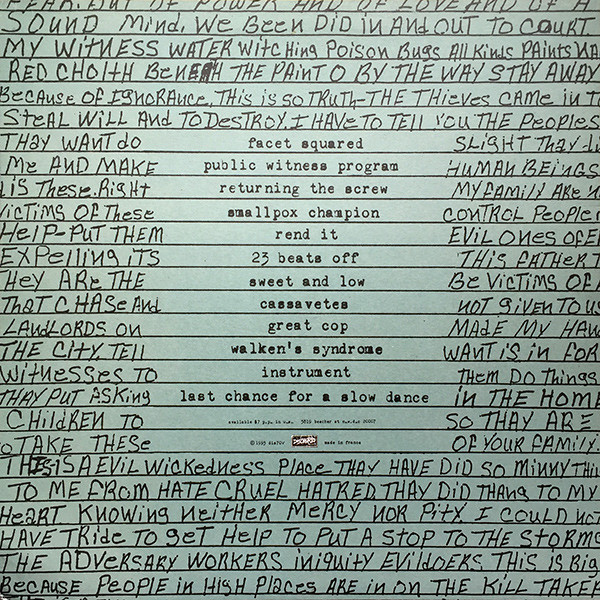 FEAR. BUT OF POWER AND OF LOVE AND OF A
SOUND MIND. WE BEEN DID IN AND OUT TO COURT
MY WITNESS WATER WITCHING POISON BUGS All KINDS PAINTS
RED CHOITH BENETH THE PAINT O BY THE WAY STAY AWAY
BECAUSE OF IGNORANCE, THIS is so TRUTH-THE THIEVES CAME iN T
STEAL WILL AND TO DESTROY. I HAVE TO TELL YOU THE PEOPLES
THAY WANT do facet squared SLIGHT THAY
ME AND MAKE public witness program HUMAN BEINGS
is THESE. RIGHT returning the screw MY FAMILY ARE
VICTIMS OF THESE smallpox champion CONTROL PEOPLE
HELP-PUT THEM rend it EVIL ONES OF
EXPELLING ITS 23 beats off THIS FATHER T
HEY ARE THE sweet and low BE VICTIMS OF
THAT CHASE AND cassavetes NOT GIVEN TO US
LANDLORDS ON great cop MADE MY
THE CITY. TELL walken's syndrome WANT iS iN FOR
WITNESSES TO instrument THEM DO THINGS
THAY PUT ASKING last chance for a slow dance iN THE HOME
CHILDREN TO available $7 p.p. in u.s. 3819 beecher st n.w.d.c 20007 SO THAY ARE
O TAKE THESE ©1993 dis70v DISCHORD made in france OF YOUR FAMILY.
THIS IS A EVIL WICKEDNESS PLACE THAY HAVE DID SO MINNY
TO ME FROM HATE CRUEL HATRED THAY DID THANG TO MY
HEART KNOWING NEITHER MERCY NOR PITY I COULD NOT
HAVE TRIDE TO GET HELP TO PUT A STOP TO THE STORMS
THE ADVERSARY WORKERS INIQUITY EVILDOERS THIS IS
BECAUSE PEOPLE IN HIGH PLACES ARE iN ON THE KILL TAKE